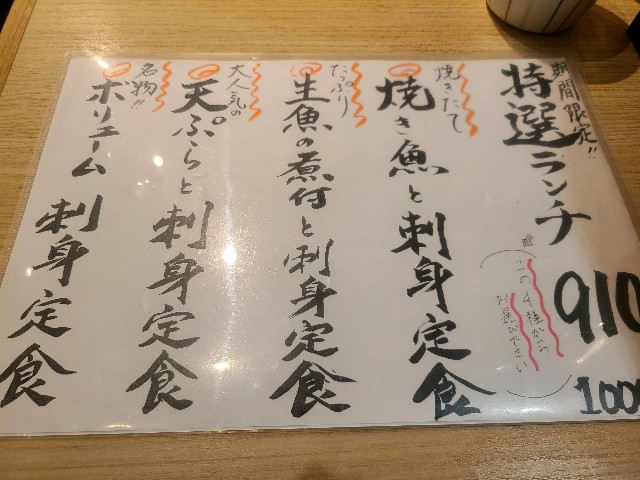 期間限定!!
特選ランチ
910
100
この4種から
お選び下さい
焼きたて
焼き魚と刺身定食
たっぷり
生魚の煮付と刺身定食
大人気の
天ぷらと刺身定食
名物!!
ボリューム刺身定食